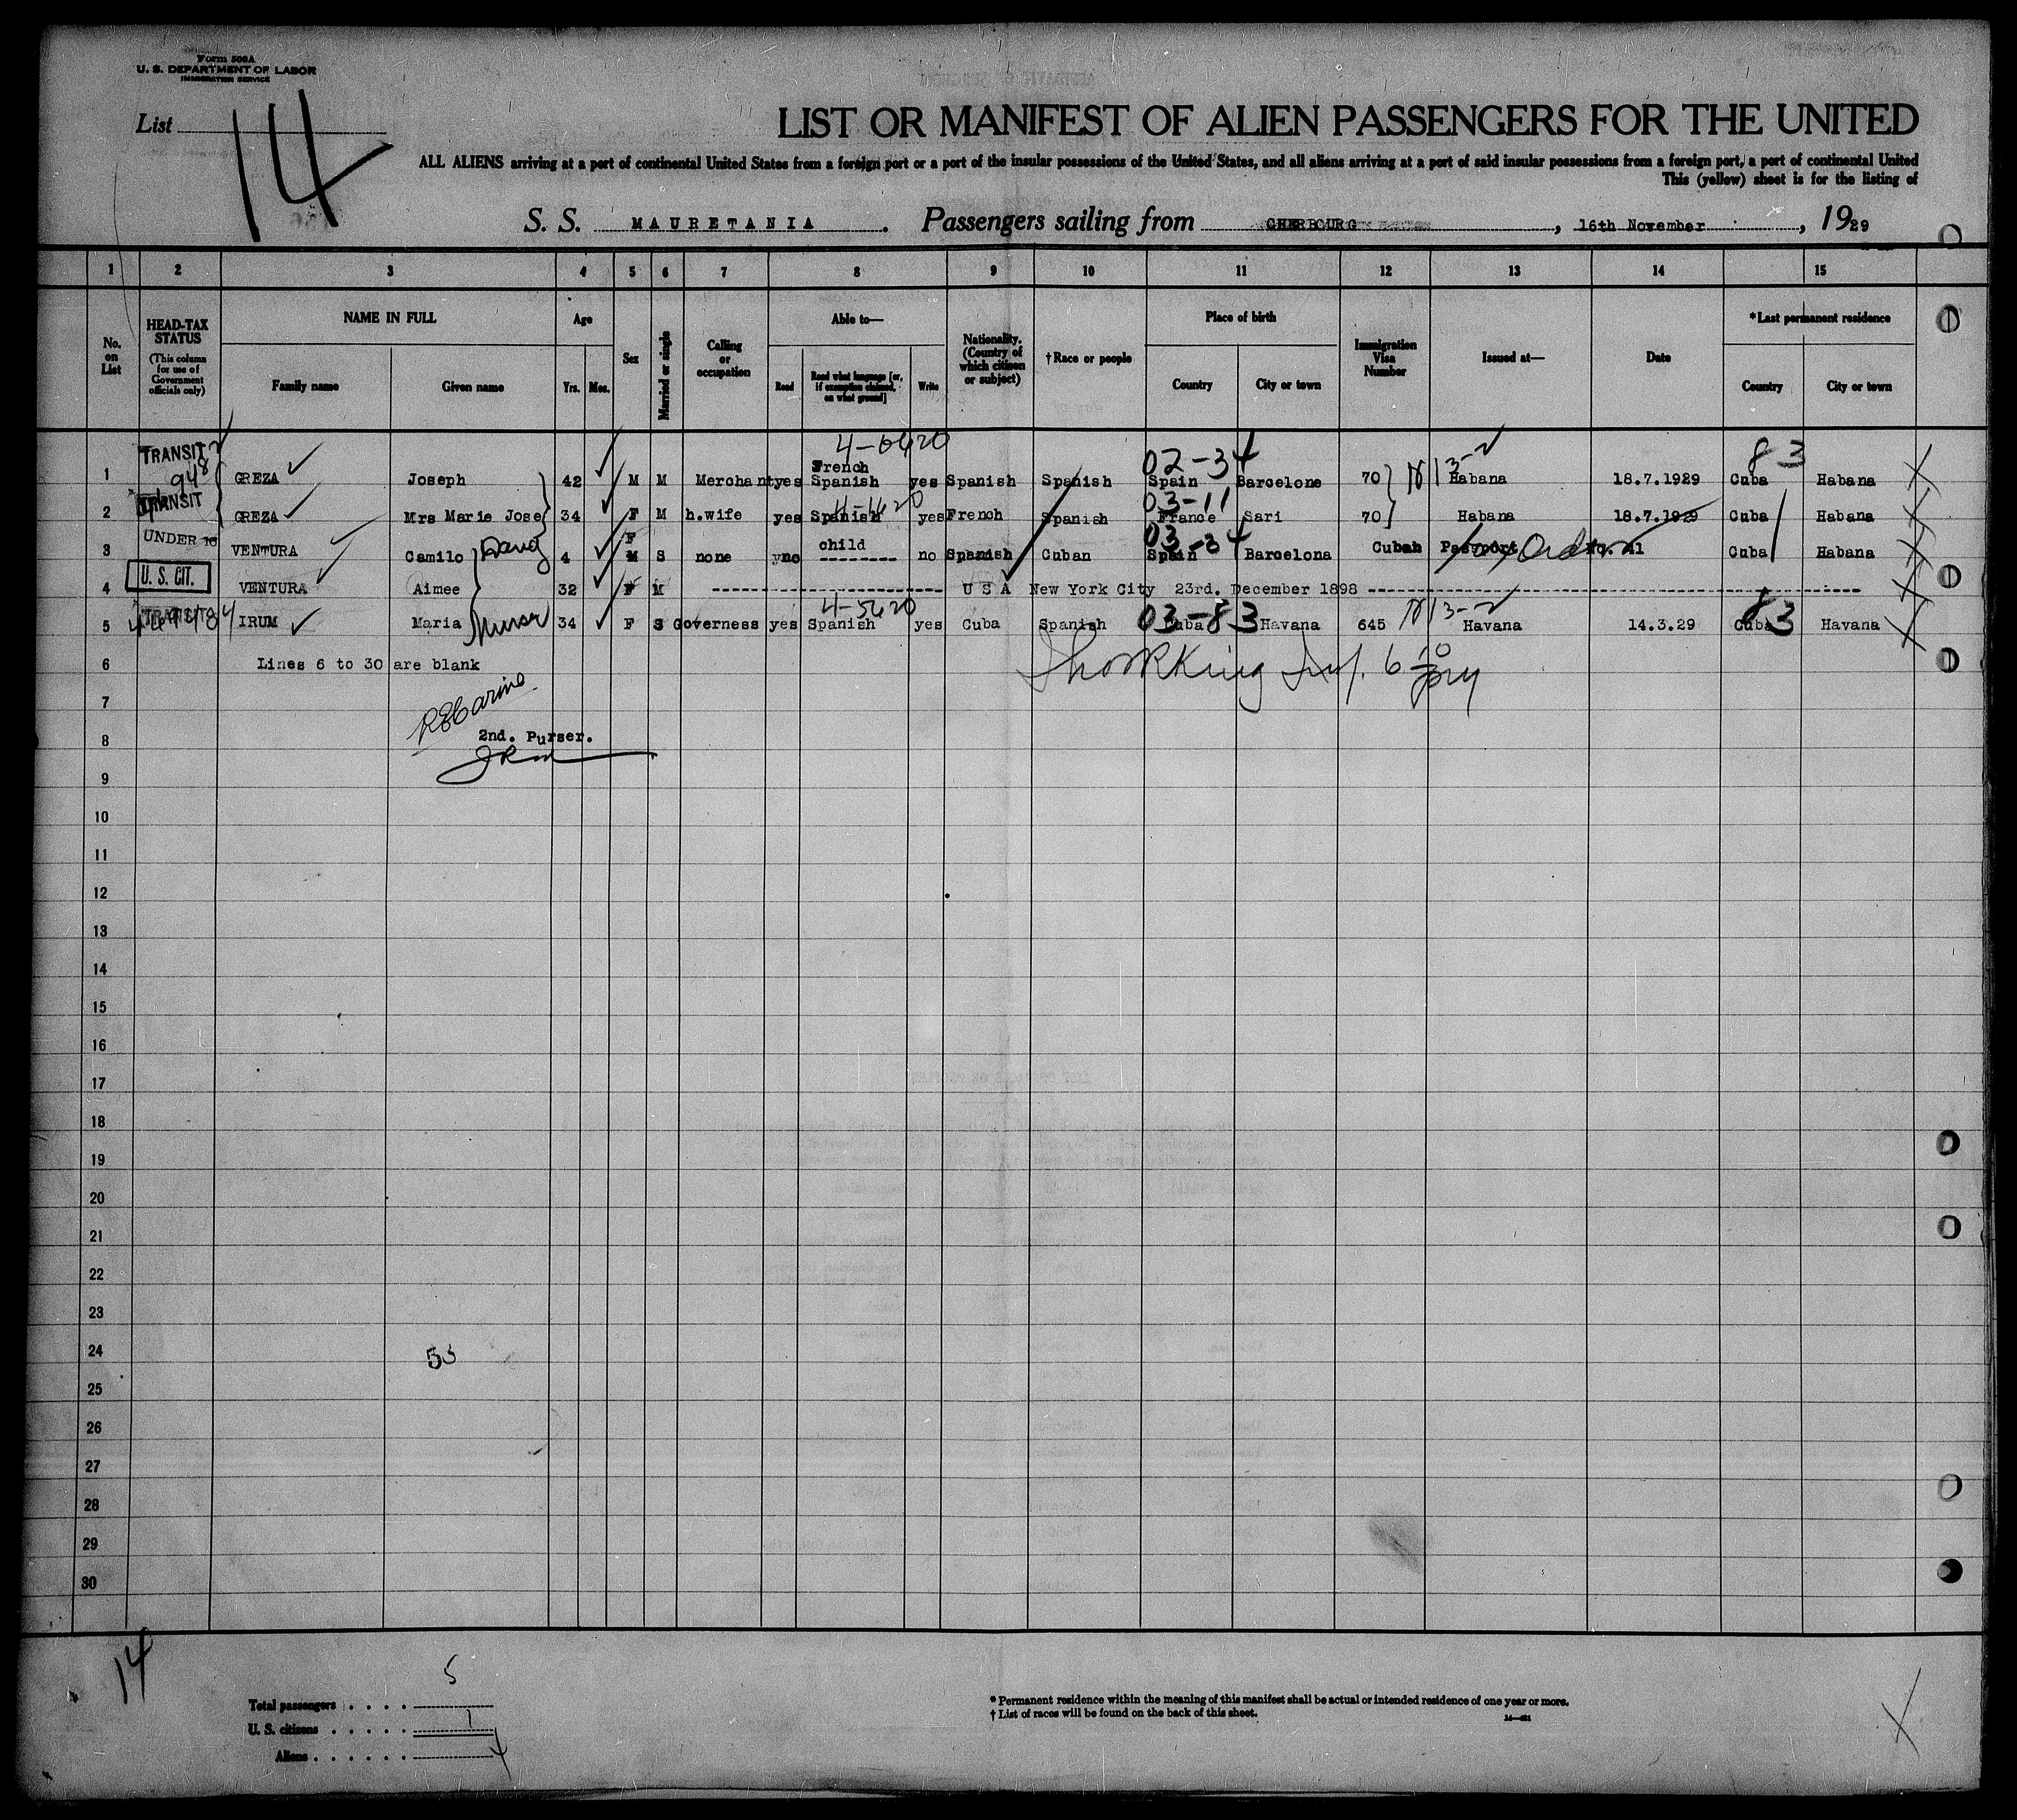 Form 500A
U. S. DEPARTMENT OF LABOR
IMMIGRATION SERVICE
List 14
LIST OR MANIFEST OF ALIEN PASSENGERS FOR THE UNITED
ALL ALIENS arriving at a port of continental United States from a foreign port or a port of the insular possessions of the United States, and all aliens arriving at a port of said insular possessions from a foreign port, a port of continental United
This (yellow) sheet is for the listing of
S. S. MAURETANIA. Passengers sailing from CHERBOURG, 16th November, 1929
1 2 3 4 5 6 7 8 9 10 11 12 13 14 15
No. on List
HEAD-TAX STATUS (This column for use of Government officials only)
NAME IN FULL
Family name
Given name
Age
Yrs. Mos.
Sex
Married or single
Calling or occupation
Able to—
Read
Read what language [or, if exemption claimed, on what ground]
Write
Nationality. (Country of which citizen or subject)
† Race or people
Place of birth
Country
City or town
Immigration Visa Number
Issued at—
Date
* Last permanent residence
Country
City or town
02-34 83
1 TRANSIT 948 GREZA Joseph 42 M M Merchant yes French Spanish yes Spanish Spanish Spain Barcelone 70 Habana 18.7.1929 Cuba Habana
03-11
2 TRANSIT GREZA Mrs Marie Jose 34 F M h.wife yes Spanish yes French Spanish France Sari 70 Habana 18.7.1929 Cuba Habana
03-34
3 UNDER 16 VENTURA Camilo 4 F M S none no child -------- no Spanish Cuban Spain Barcelona Cuban Passport Cuba Habana
4 U. S. CIT. VENTURA Aimee 32 F M -------- U S A New York City 23rd. December 1898 --------
4-5620
5 TRANSIT IRUM Maria Nurse 34 F S Governess yes Spanish yes Cuba Spanish 03-83 Cuba Havana 645 Havana 14.3.29 Cuba 83 Havana
6 Lines 6 to 30 are blank
7
8 2nd. Purser.
9
10
11
12
13
14
15
16
17
18
19
20
21
22
23
24
25
26
27
28
29
30
14
Total passengers . . . . 5
U. S. citizens . . . . . 1
Aliens . . . . . . 4
* Permanent residence within the meaning of this manifest shall be actual or intended residence of one year or more.
† List of races will be found on the back of this sheet.